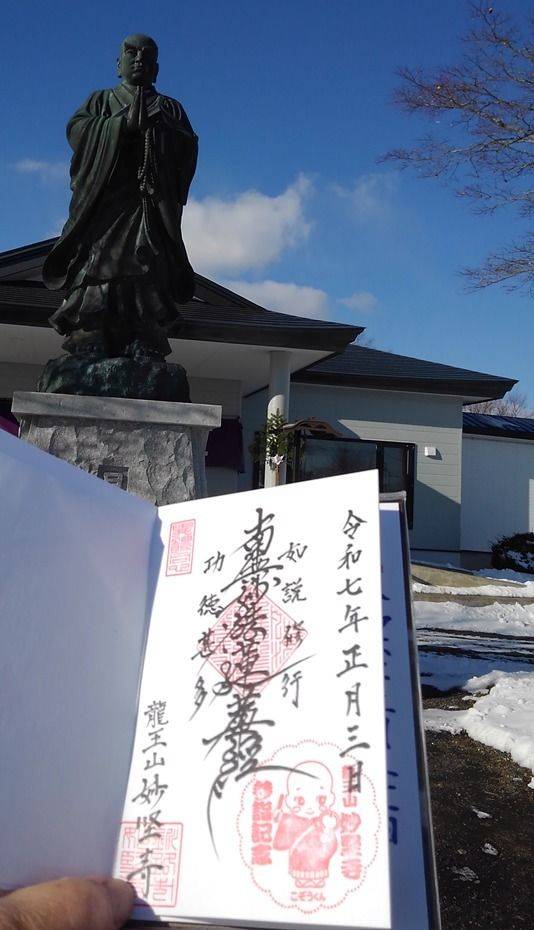 令和七年正月三日
如説修行
南無妙法蓮華経
功徳甚多
龍王山 妙堅寺
参詣記念
こぞうくん